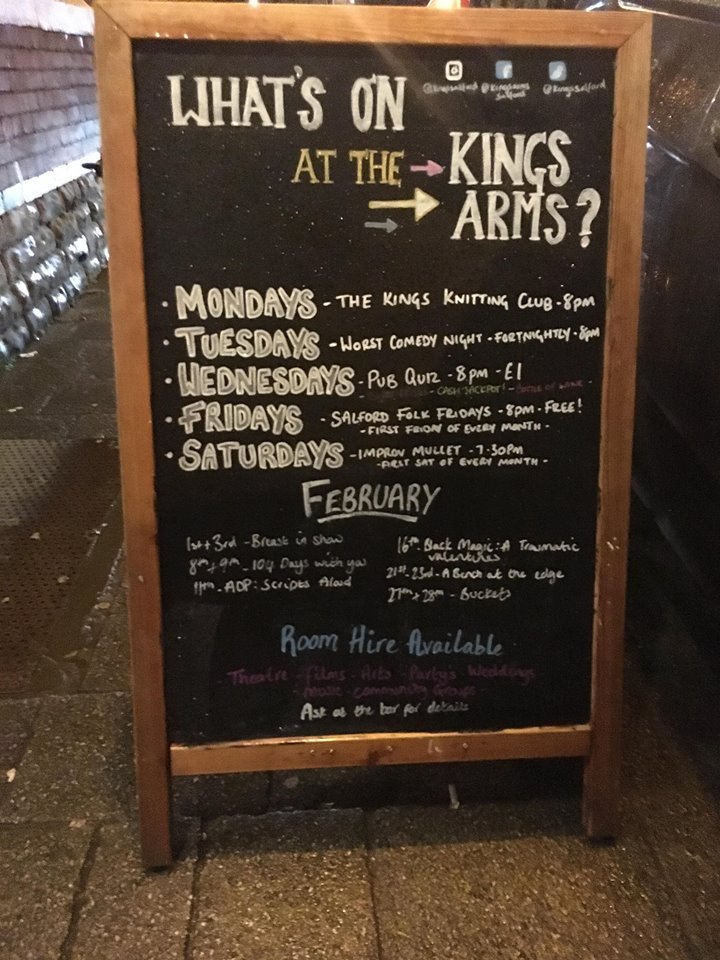 WHAT'S ON
@kingssalford @kingsarms salford @kingssalford
AT THE KINGS
ARMS?
• MONDAYS - THE KINGS KNITTING CLUB - 8pm
• TUESDAYS - WORST COMEDY NIGHT - FORTNIGHTLY - 8pm
• WEDNESDAYS - PUB QUIZ - 8pm - £1
- CASH JACKPOT! - BOTTLE OF WINE -
• FRIDAYS - SALFORD FOLK FRIDAYS - 8pm - FREE!
- FIRST FRIDAY OF EVERY MONTH -
• SATURDAYS - IMPROV MULLET - 7.30pm
- FIRST SAT OF EVERY MONTH -
FEBRUARY
1st + 3rd - Breast in show
8th + 9th - 104 Days with you
11th - ADP: Scripts Aloud
16th - Black Magic: A Traumatic
valentines
21st - 23rd - A Bench at the edge
27th + 28th - Buckets
Room Hire Available
Theatre - Films - Arts - Party's Weddings
- Music - community Groups -
Ask at the bar for details